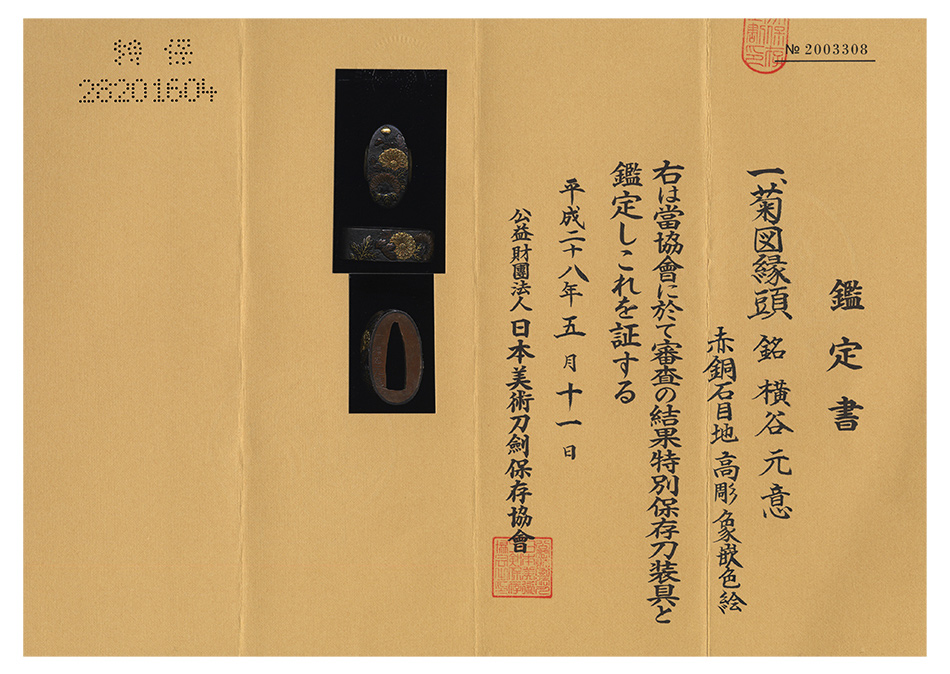 № 2003308
鑑定書
一、菊図縁頭 銘 横谷元意
赤銅石目地 高彫 象嵌色絵
右は當協會に於て審査の結果特別保存刀装具と
鑑定しこれを証する
平成二十八年五月十一日
公益財團法人 日本美術刀劍保存協會
特保
28201604